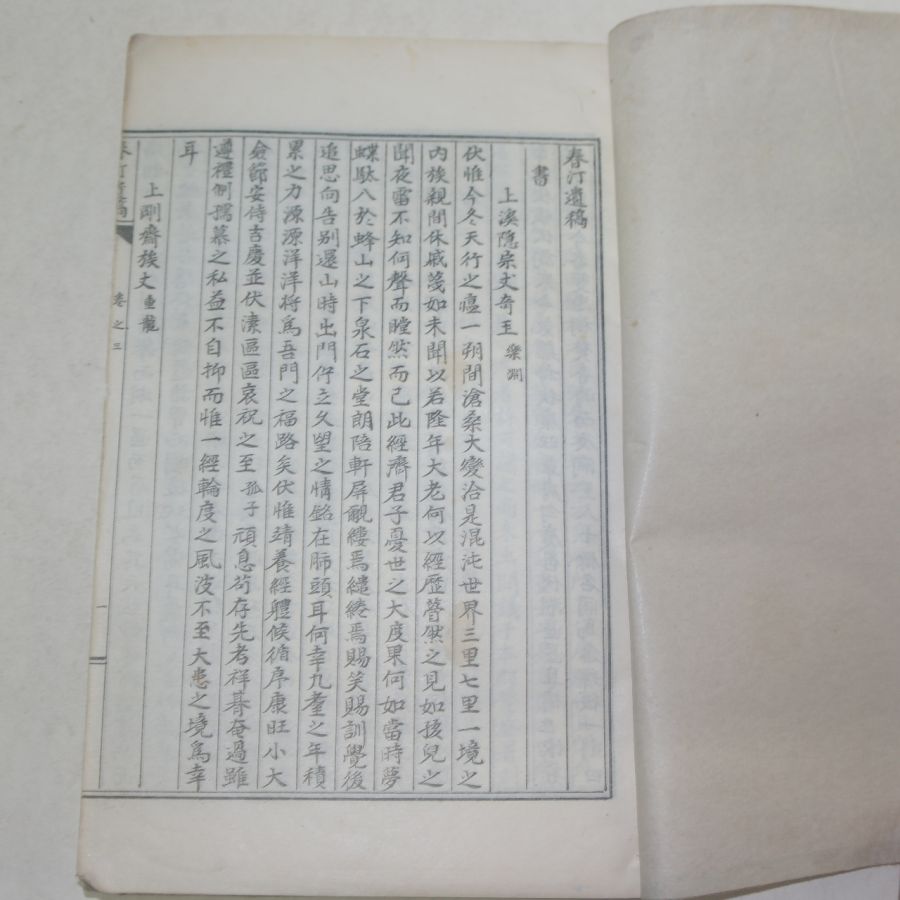 春汀遺稿
書
上溪隱宗丈奇玉 樂淵
伏惟今冬天行之瘟一朔間滄桑大變洽是混沌世界三里七里一境之
內族親間休戚蔑如未聞以若隆年大老何以經歷瞢然之見如孩兒之
聞夜雷不知何聲而瞠然而已此經濟君子憂世之大度果何如當時夢
蝶馱入於蜂山之下泉石之堂朗陪軒屏覼縷焉繾綣焉賜笑賜訓覺後
追思向告别還山時出門佇立久望之情銘在肺頭耳何幸九耋之年積
累之力源源洋洋將爲吾門之福路矣伏惟靖養經軆候循序康旺小大
僉節安侍吉慶並伏溸區區哀祝之至孤子頑息苟存先考祥朞奄過雖
遵禮制孺慕之私益不自抑而惟一經輪度之風波不至大患之境爲幸
耳
上剛齋族丈重龍
春汀遺稿 卷之三 一